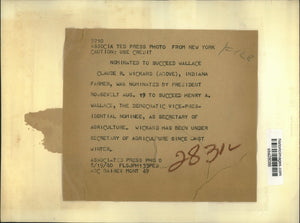 ASSOCIATED PRESS PHOTO FROM NEW YORK
CAUTION: USE CREDIT
NOMINATED TO SUCCEED WALLACE
CLAUDE R. WICKARD (ABOVE), INDIANA
FARMER, WAS NOMINATED BY PRESIDENT
ROOSEVELT AUG. 19 TO SUCCEED HENRY A.
WALLACE, THE DEMOCRATIC VICE-PRES-
IDENTIAL NOMINEE, AS SECRETARY OF
AGRICULTURE. WICKARD HAS BEEN UNDER
SECRETARY OF AGRICULTURE SINCE LAST
WINTER.
ASSOCIATED PRESS PHOTO
8/19/40